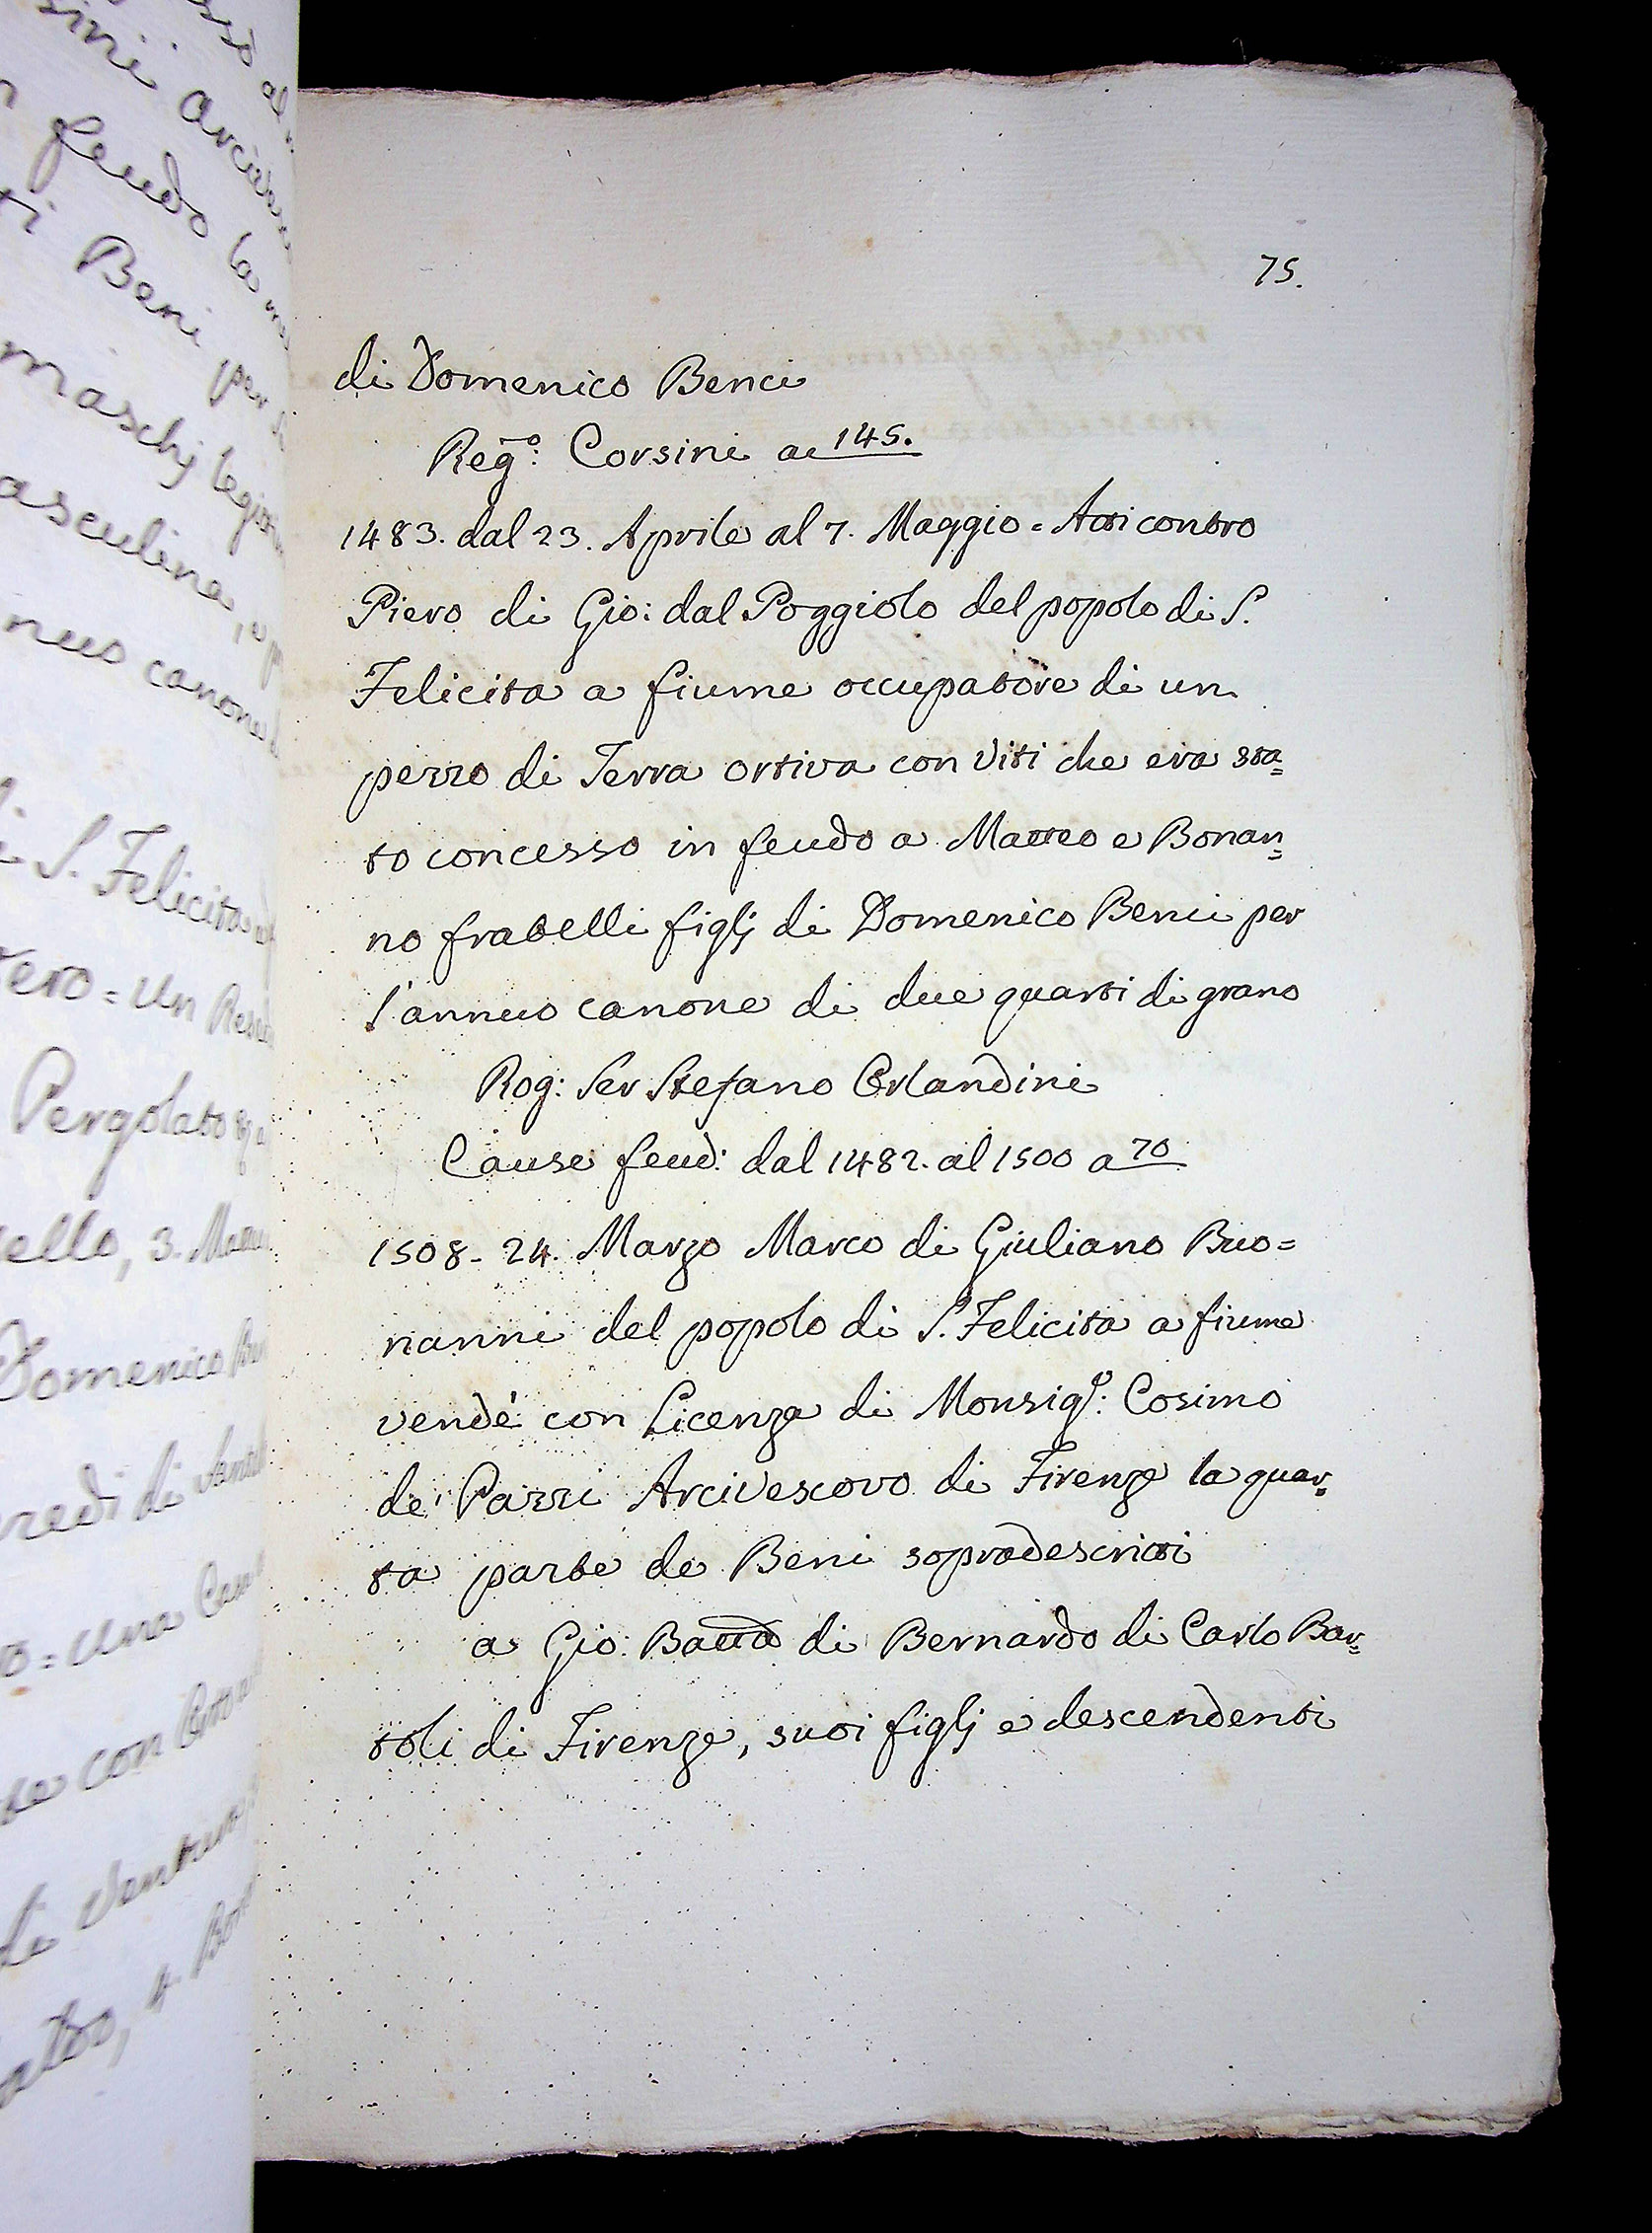 75.
di Domenico Benci
Reg.º: Corsini a 145.
1483. dal 23. Aprile al 7. Maggio = Atti contro
Piero di Gio: dal Poggiolo del popolo di S.
Felicita a fiume occupatore di un
pezzo di Terra ortiva con Viti che era sta=
to concesso in feudo a Matteo e Bonan=
no fratelli figlj di Domenico Benci per
l'annuo canone di due quarti di grano
Rog: Ser Stefano Orlandini
Cause feud: dal 1482. al 1500 a 70
1508 - 24. Marzo Marco di Giuliano Buo=
nanni del popolo di S. Felicita a fiume
vendè con Licenza di Monsigr: Cosimo
de' Pazzi Arcivescovo di Firenze la quar=
ta parte de Beni sopradescritti
a Gio: Batta di Bernardo di Carlo Bar=
toli di Firenze, suoi figlj e descendenti
feudo la
ti Beni per
maschj legitt
asculina,
nuo canone
S. Felicita
Un
Pergolato
ello, 3.
Domenico
redi di
= Una Casa
con
di Ventur